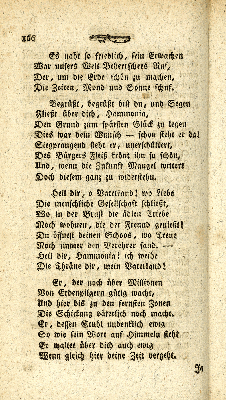 166
Es naht so friedlich, sein Erwachen
War unsers Welt Beherrschers Ruf,
Der, um die Erde schön zu machen,
Die Zeiten, Mond und Sonne schuf.
Begrüßt, begrüßt bist du, und Segen
Fließt über dich, Hammonia,
Den Grund zum spätsten Glück zu legen
Dies war dein Wunsch — schon steht er da!
Siegprangend steht er, unerschüttert,
Des Bürgers Fleiß krönt ihn so schön,
Und, wenn die Zukunft Mangel wittert
Doch diesem ganz zu widerstehn.
Heil dir, o Vaterland! wo Liebe
Die menschliche Gesellschaft schließt,
Wo in der Brust die ädlen Triebe
Noch wohnen, die der Freund genießt!
Du öffnest deinen Schoos, wo Treue
Noch immer den Verehrer fand. —
Heil dir, Hammonia! ich weihe
Die Thräne dir, mein Vaterland!
Er, der noch über Millionen
Von Erdenpilgern gütig wacht,
Und hier bis zu den fernsten Zonen
Die Schickung väterlich noch macht,
Er, dessen Stuhl undenklich ewig
So wie sein Wort auf Himmeln steht
Er waltet über dich auch ewig
Wenn gleich hier deine Zeit vergeht.